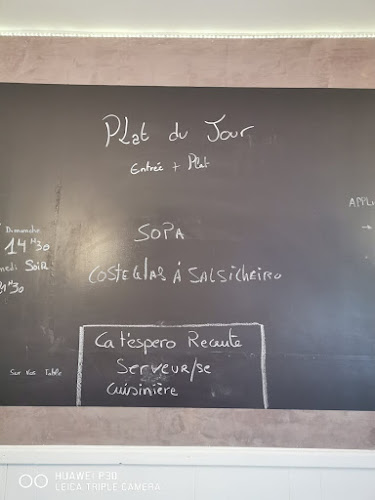 Plat du Jour
Entrée + Plat
Dimanche
14H30
SOPA
medi Soir
COSTELLAS À SALSICHEIRO
H30
APPL
Ca t'espero Recrute
Serveur/se
cuisinière
Sur Vos Table
HUAWEI P30
LEICA TRIPLE CAMERA